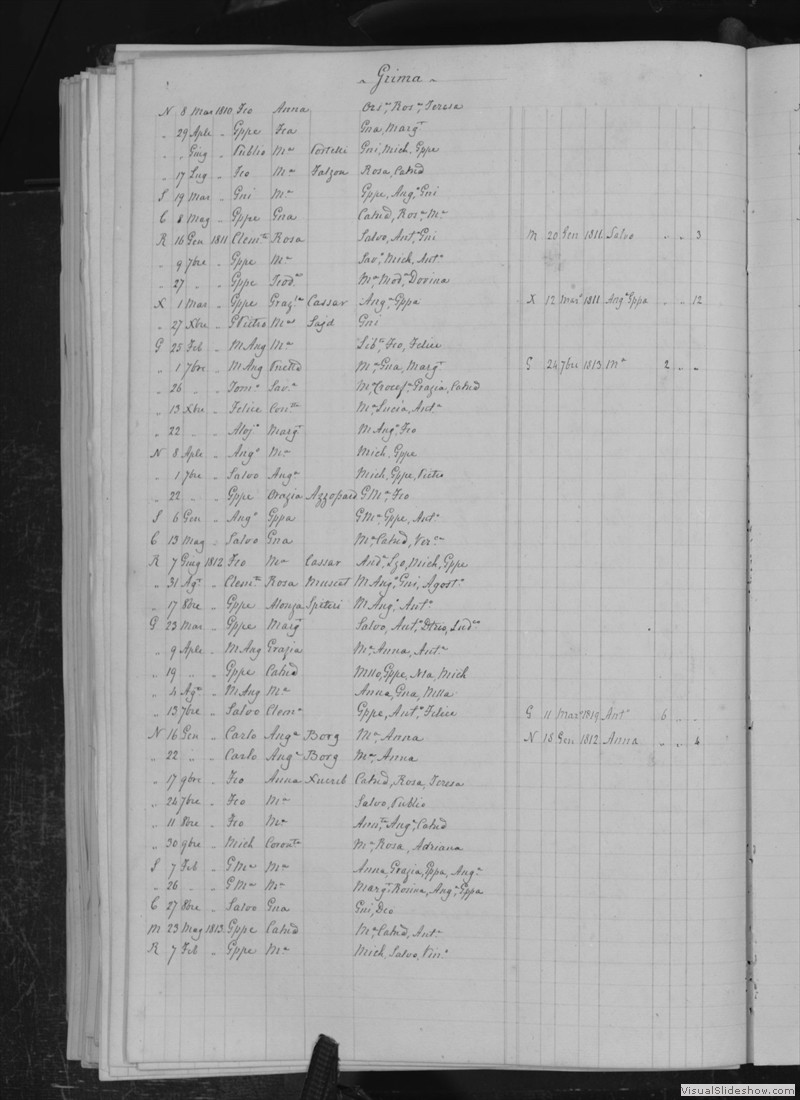 ~ Grima ~
N 8 Mar 1810 Feo Anna Ors.a, Ros.a, Teresa
„ 29 Aple „ Gppe Fca Gna, Marg.t
„ „ Giug „ Publio M.a Portelli Gni, Mich, Gppe
„ 17 Lug „ Feo M.a Falzon Rosa, Catnd
S 19 Mar „ Gni M.a Gppe, Ang.o, Gni
C 8 Mag „ Gppe Gna Catnd, Ros.a, M.a
R 16 Gen 1811 Clem.te Rosa Salvo, Ant.o, Gni M 20 Gen 1811 Salvo „ „ 3
„ 9 7bre „ Gppe M.a Sav.o, Mich, Ant.o
„ 27 „ „ Gppe Teod.a M.a, Mod.a, Dorina
X 1 Mar „ Gppe Graz.a Cassar Ang.a, Gppa X 12 Mar 1811 Ang.a Gppa „ „ 12
„ 27 Xbre „ GPietro M.a Sajd Gni
G 25 Feb „ MAng M.a Feo, Felice
„ 1 7bre „ MAng M.a, Gna, Marg.t G 24 7bre 1813 M.a 2 „ „
„ 26 „ „ Tom.o Sav.a M.a, Crocef.a, Grazia, Catnd
„ 13 Xbre „ Felice Con.tta M.a, Lucia, Ant.a
„ 22 „ „ Aloj.o Marg.t MAng.o, Feo
N 8 Aple „ Ang.o M.a Mich, Gppe
„ 1 7bre „ Salvo Ang.a Mich, Gppe, Pietro
„ 22 „ „ Gppe Grazia Azzopard GM.a, Feo
S 6 Gen „ Ang.o Gppa GM.a, Gppe, Ant.o
C 13 Mag „ Salvo Gna M.a, Catnd, Ver.ca
R 7 Giug 1812 Feo M.a Cassar And.a, Lzo, Mich, Gppe
„ 31 Ag.o „ Clem.te Rosa Muscat MAng.o, Gni, Agost.o
„ 17 8bre „ Gppe Alonza Spiteri MAng.o, Ant.o
G 23 Mar „ Gppe Marg.t Salvo, Ant.o, Dtrio, Lud.co
„ 9 Aple „ MAng Grazia M.a, Anna, Ant.a
„ 19 „ „ Gppe Catnd Mllo, Gppe, Nla, Mich
„ 4 Ag.o „ MAng M.a Anna, Gna, Mlla
„ 13 7bre „ Salvo Clem.a Gppe, Ant.o, Felice G 11 Mar 1819 Ant.o 6 „ „
N 16 Gen „ Carlo Ang.a Borg M.a, Anna N 18 Gen 1812 Anna „ „ 4
„ 22 „ „ Carlo Ang.a Borg M.a, Anna
„ 17 9bre „ Feo Anna Xuereb Catnd, Rosa, Teresa
„ 24 7bre „ Feo M.a Salvo, Publio
„ 11 8bre „ Feo M.a Ang.o, Catnd
„ 30 9bre „ Mich Coront.a M.a, Rosa, Adriana
S 7 Feb „ GM.a M.a Anna, Grazia, Gppa, Ang.a
„ 26 „ „ GM.a M.a Marg.t, Rosina, Ang.a, Gppa
C 27 8bre „ Salvo Gna Gni, Deo
M 23 Mag 1813 Gppe Catnd M.a, Catnd, Ant.a
R 7 Feb „ Gppe M.a Mich, Salvo, Vin.o
VisualSlideshow.com